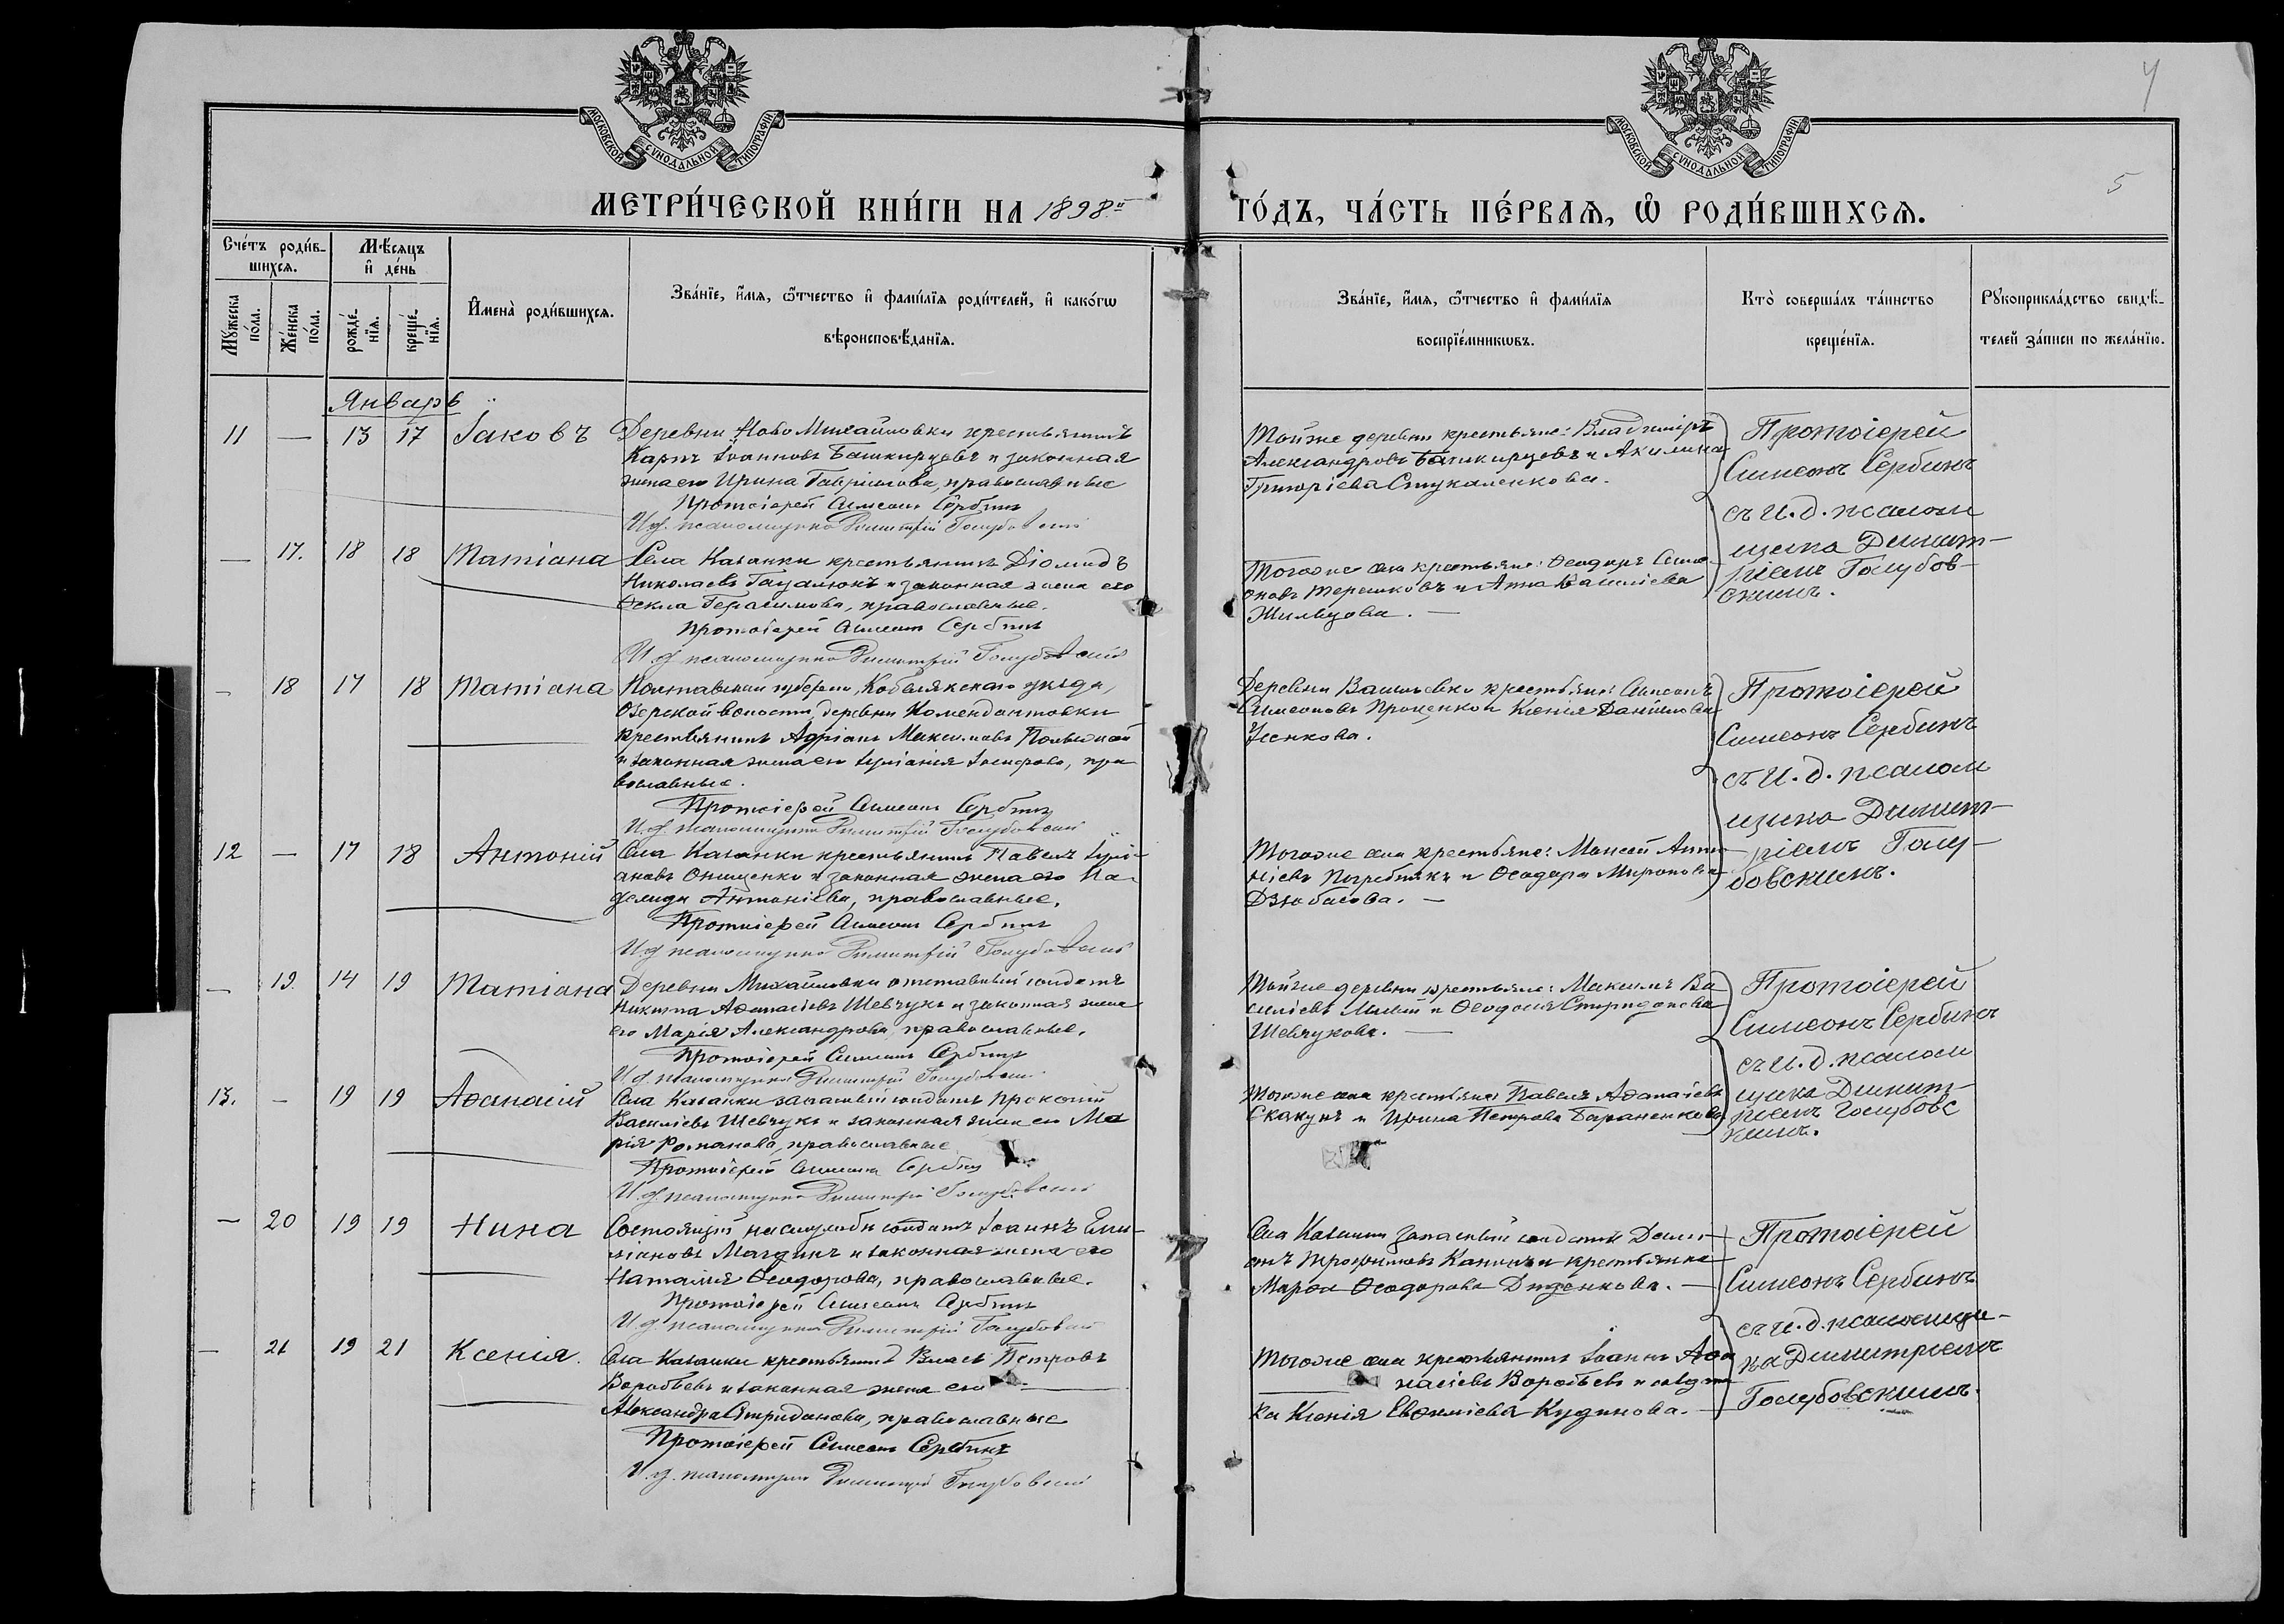 МОСКОВСКОЙ СѴНОДАЛЬНОЙ ТИПОГРАФІИ
МОСКОВСКОЙ СѴНОДАЛЬНОЙ ТИПОГРАФІИ
4
5
МЕТРИ́ЧЕСКОЙ КНИ́ГИ НА 1898й
ГО́ДЪ, ЧА́СТЬ ПЕ́РВАѦ, Ѽ РОДИ́ВШИХСѦ.
Сче́тъ роди́в-
шихсѧ.
Мꙋ́жеска по́ла.
Же́нска по́ла.
Мѣ́сѧцъ
и҆ де́нь
рожде́-нїѧ.
креще́-нїѧ.
И҆мена̀ роди́вшихсѧ.
Зва́нїе, и҆́мѧ, ѻ҆́тчество и҆ фами́лїѧ роди́телей, и҆ како́гѡ
вѣроисповѣ́данїѧ.
Зва́нїе, и҆́мѧ, ѻ҆́тчество и҆ фами́лїѧ
воспрїе́мникѡвъ.
Кто̀ соверша́лъ та́инство
креще́нїѧ.
Рꙋкоприкла́дство свидѣ́-
телей за́писи по жела́нїю.
Январь
11 — 13 17 Іаковъ
Деревни Ново Михайловки крестьянинъ
Карпъ Іоанновъ Башкирцевъ и законная
жена его Ирина Гавриилова, православные
Протоіерей Симеонъ Сербинъ
И.д. псаломщика Димитрій Голубовскій
Тойже деревни крестьяне: Владиміръ
Александровъ Башкирцевъ и Акилина
Григоріева Стукаленкова.
Протоіерей
Симеонъ Сербинъ
съ И.д. псалом
щика Димит-
ріемъ Голубов-
скимъ.
— 17. 18 18 Татіана
Села Казанки крестьянинъ Діомидъ
Николаевъ и законная жена его
Ѳекла Герасимова, православные.
Протоіерей Симеонъ Сербинъ
И.д. псаломщика Димитрій Голубовскій
Тогоже села крестьяне: Ѳеодоръ Симе-
оновъ Терешковъ и Анна Василіева
Жильцова. —
— 18 17 18 Татіана
Полтавской губерніи, Кобелякскаго уѣзда,
Озерской волости, деревни Комендантовки
крестьянинъ Адріанъ Максимовъ
и законная жена его Іуліанія Іосифова, пра
вославные.
Протоіерей Симеонъ Сербинъ
И.д. псаломщика Димитрій Голубовскій
Деревни Васильевки крестьяне: Симеонъ
Симеоновъ Проценко и Ксенія Даніилова
Усенкова.
Протоіерей
Симеонъ Сербинъ
съ И.д. псалом
щика Димит-
ріемъ Голу-
бовскимъ.
12 — 17 18 Антоній
Села Казанки крестьянинъ Павелъ Іулі-
ановъ Онищенко и законная жена его Па-
Антоніева, православные.
Протоіерей Симеонъ Сербинъ
И.д. псаломщика Димитрій Голубовскій
Тогоже села крестьяне: Моисей Анто-
ніевъ Погребнякъ и Ѳеодора Миронова
Дзюбасова. —
— 19. 14 19 Татіана
Деревни Михайловки отставной солдатъ
Никита Аѳанасіевъ Шевчукъ и законная жена
его Марія Александрова, православные.
Протоіерей Симеонъ Сербинъ
И.д. псаломщика Димитрій Голубовскій
Тойже деревни крестьяне: Максимъ Ва
силіевъ и Ѳеодосія Спиридонова
Шевчукова. —
Протоіерей
Симеонъ Сербинъ
съ И.д. псалом
щика Димит-
ріемъ Голубовс
кимъ.
13. — 19 19 Аѳанасій
Села Казанки запасный солдатъ Прокопій
Василіевъ Шевчукъ и законная жена его Ма
рія Романова, православные
Протоіерей Симеонъ Сербинъ
И.д. псаломщика Димитрій Голубовскій
Тогоже села крестьяне Павелъ Аѳанасіевъ
Скакунъ и Ирина Петрова Бараненкова
— 20 19 19 Нина
Состоящій на службѣ солдатъ Іоаннъ Еми-
ліановъ и законная жена его
Наталія Ѳеодорова, православные.
Протоіерей Симеонъ Сербинъ
И.д. псаломщика Димитрій Голубовскій
Села Казанки запасный солдатъ
Трофимовъ и крестьянка
Марѳа Ѳеодорова Диденкова. —
Протоіерей
Симеонъ Сербинъ
съ И.д. псаломщи-
ка Димитріемъ
Голубовскимъ.
— 21 19 21 Ксенія.
Села Казанки крестьянинъ Власъ Петровъ
Воробьевъ и законная жена его —
Александра Спиридонова, православные
Протоіерей Симеонъ Сербинъ
И.д. псаломщика Димитрій Голубовскій
Тогоже села крестьянинъ Іоаннъ Аѳа
насіевъ Воробьевъ и солдат
ка Ксенія Евѳиміева Кудинова. —